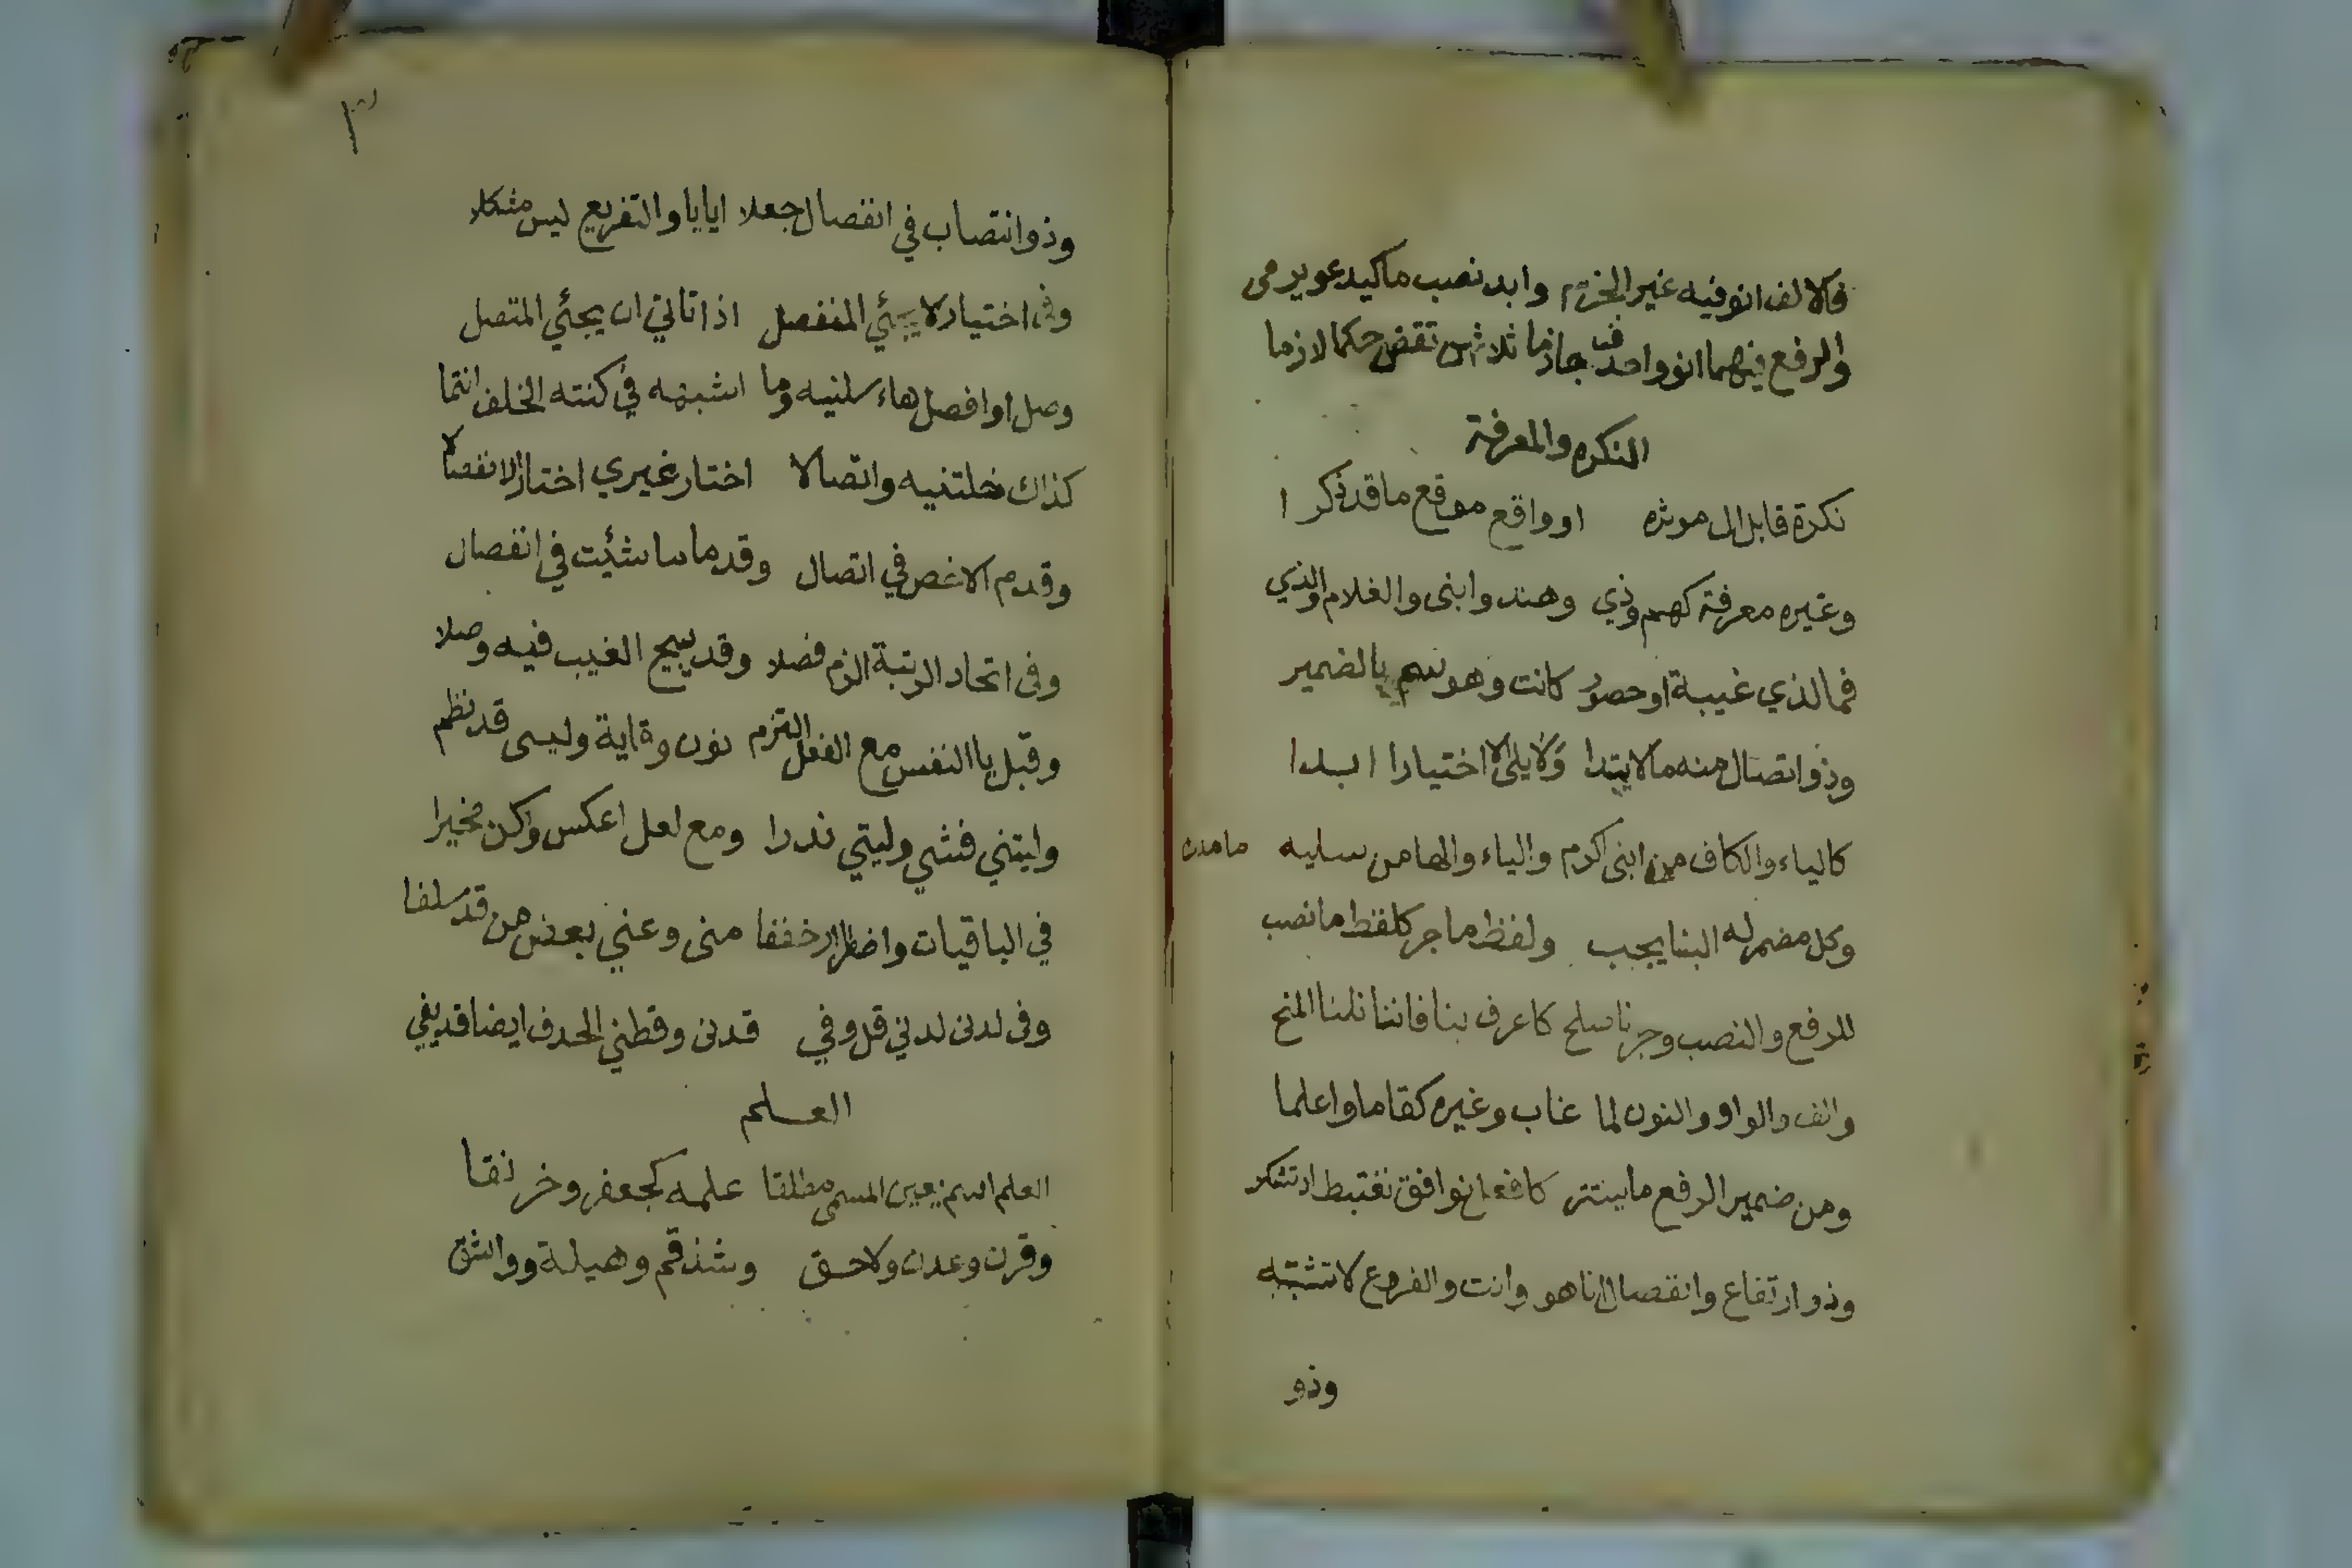 فالالف انو فيه غير الجزم وابد نصب ما كيدعو يرمى
والرفع فيهما انو واحذف جازما ثلاثهن تقض حكما لازما
النكره والمعرفة
نكرة قابل ال موثره او واقع موقع ما قد ذكرا
وغيره معرفة كهم وذي وهند وابنى والغلام والذي
فما لذي غيبة او حصور كانت وهو سم بالضمير
وذو اتصال منه ما لا يبتدا ولا يلى الا اختيارا ابدا
كالياء والكاف من ابنى اكرم والياء والها من سليه ما ملك
وكل مضمر له البنا يجب ولفظ ما جر كلفظ ما نصب
للرفع والنصب وجر نا صلح كاعرف بنا فاننا نلنا المنح
والف والواو والنون لما غاب وغيره كقاما واعلما
ومن ضمير الرفع ما يستتر كافعل نوافق نغتبط اذ تشكر
وذو ارتفاع وانفصال انا هو وانت والفروع لا تشتبه
وذو
٣
وذو انتصاب في انفصال جعلا ايايا والتفريع ليس مشكلا
وفى اختيار لا يجئي المنفصل اذا تاتي ان يجئي المتصل
وصل او افصل هاء سلنيه وما اشبهه في كنته الخلف انتما
كذاك خلتنيه واتصالا اختار غيري اختار الانفصالا
وقدم الاخص في اتصال وقدما ما شئت في انفصال
وفى اتحاد الرتبة الزم فصلا وقد يبيح الغيب فيه وصلا
وقبل يا النفس مع الفعل التزم نون وقاية وليسى قد نظم
وليتني فشي وليتي ندرا ومع لعل اعكس وكن مخيرا
في الباقيات واضطرار خففا منى وعني بعض من قد سلفا
وفى لدنى لدني قل وفي قدنى وقطني الحدف ايضا قد يفي
العلم
العلم اسم يعين المسمى مطلقا علمه كجعفر وخرنقا
وقرن وعدن ولاحق وشذقم وهيلة وواشق